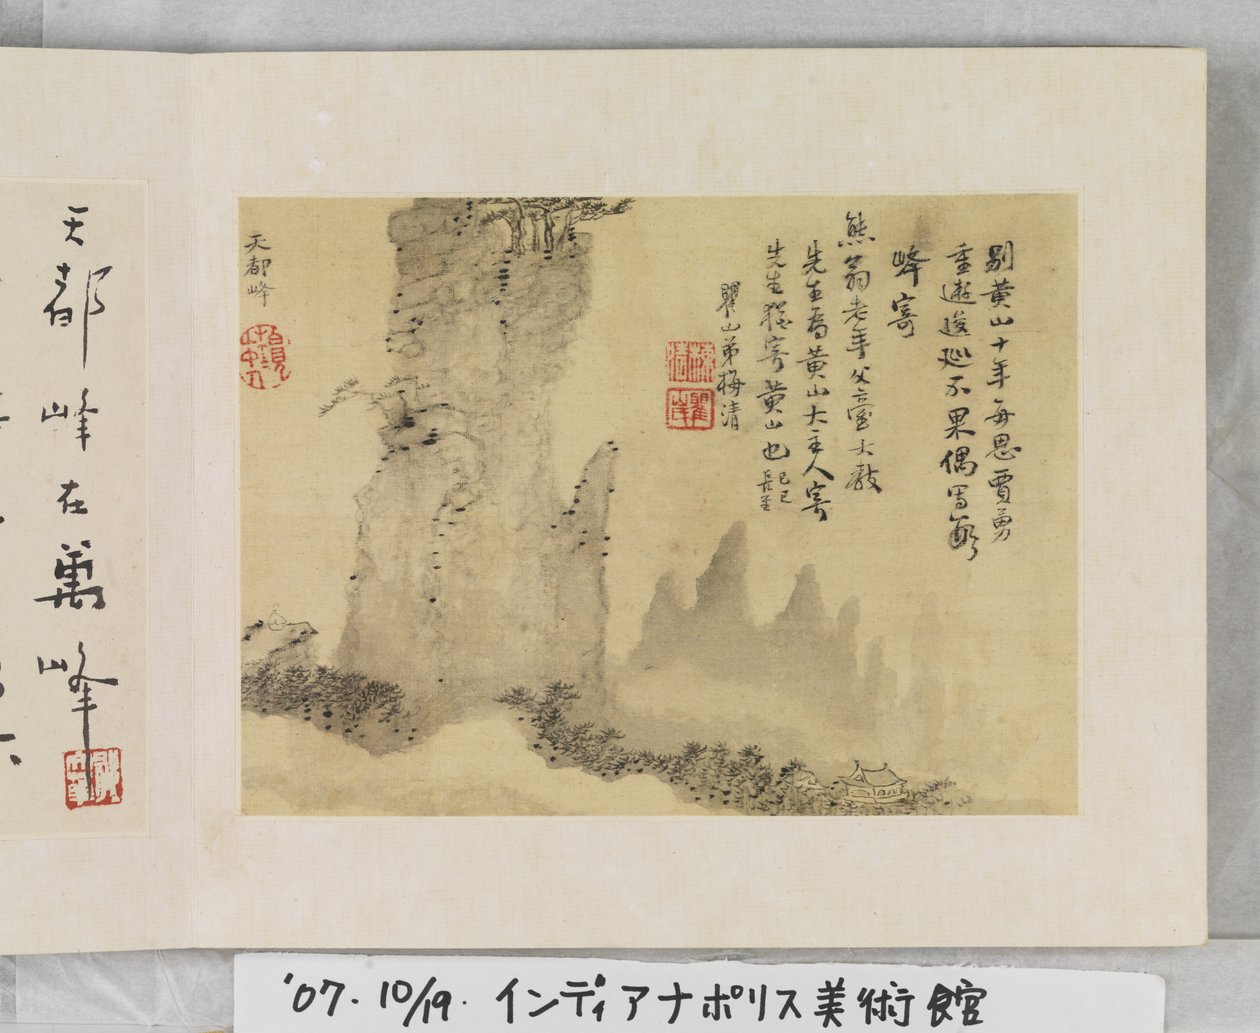 別黃山十年每思賈勇
重遊逡巡不果偶寫數
峰寄
熊翁老年父臺大教
先生為黃山大主人寄
先生猶寄黃山也
己巳
長至
瞿山弟梅清
天都峰
天都峰在萬峰
'07. 10/19. インディアナポリス美術館